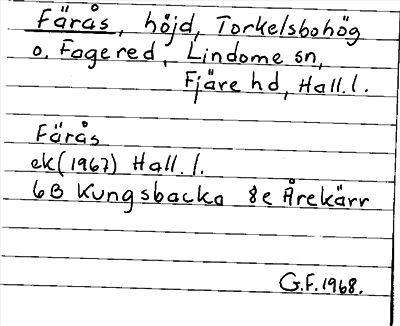 Färås, höjd, Torkelsbohög
o. Fagered, Lindome sn,
Fjäre hd, Hall. l.
Färås
ek (1967) Hall. l.
6B Kungsbacka 8e Årekärr
G.F. 1968.